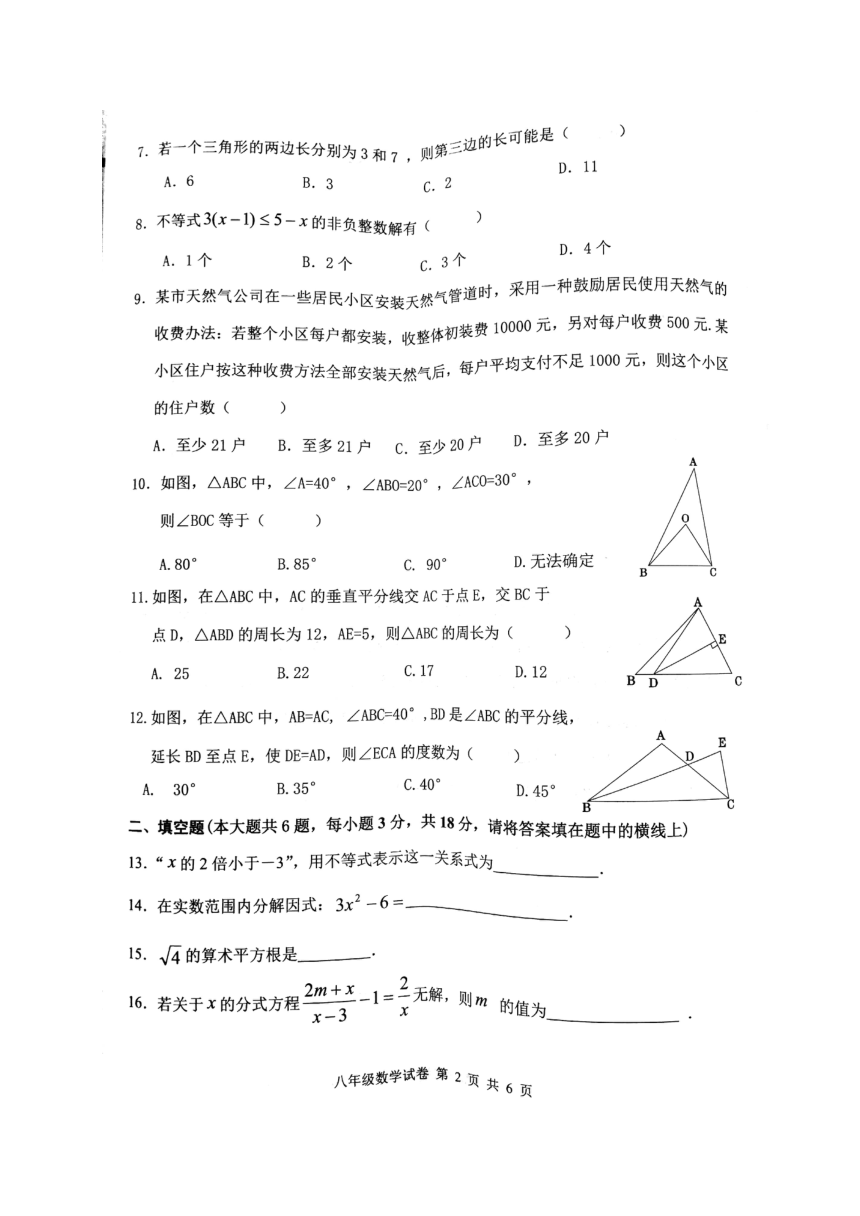 7. 若一个三角形的两边长分别为 3 和 7 ，则第三边的长可能是（　　）
A. 6　　B. 3　　C. 2　　D. 11
8. 不等式 3(x－1) ≤ 5－x 的非负整数解有（　　）
A. 1 个　　B. 2 个　　C. 3 个　　D. 4 个
9. 某市天然气公司在一些居民小区安装天然气管道时，采用一种鼓励居民使用天然气的
收费办法：若整个小区每户都安装，收整体初装费 10000 元，另对每户收费 500 元.某
小区住户按这种收费方法全部安装天然气后，每户平均支付不足 1000 元，则这个小区
的住户数（　　）
A. 至少 21 户　　B. 至多 21 户　　C. 至少 20 户　　D. 至多 20 户
10. 如图，△ABC 中，∠A=40°，∠ABO=20°，∠ACO=30°，
则∠BOC 等于（　　）
A. 80°　　B. 85°　　C. 90°　　D. 无法确定
A
O
B C
11. 如图，在△ABC 中，AC 的垂直平分线交 AC 于点 E，交 BC 于
点 D，△ABD 的周长为 12，AE=5，则△ABC 的周长为（　　）
A. 25　　B. 22　　C. 17　　D. 12
A
E
B D C
12. 如图，在△ABC 中，AB=AC，∠ABC=40°,BD 是∠ABC 的平分线，
延长 BD 至点 E，使 DE=AD，则∠ECA 的度数为（　　）
A. 30°　　B. 35°　　C. 40°　　D. 45°
A E
D
B C
二、填空题(本大题共 6 题，每小题 3 分，共 18 分，请将答案填在题中的横线上)
13. “ x 的 2 倍小于－3”，用不等式表示这一关系式为________.
14. 在实数范围内分解因式：3x² －6 =________.
15. √4 的算术平方根是________.
16. 若关于 x 的分式方程 (2m＋x)/(x－3) －1 = 2/x 无解，则 m 的值为________.
八年级数学试卷 第 2 页 共 6 页